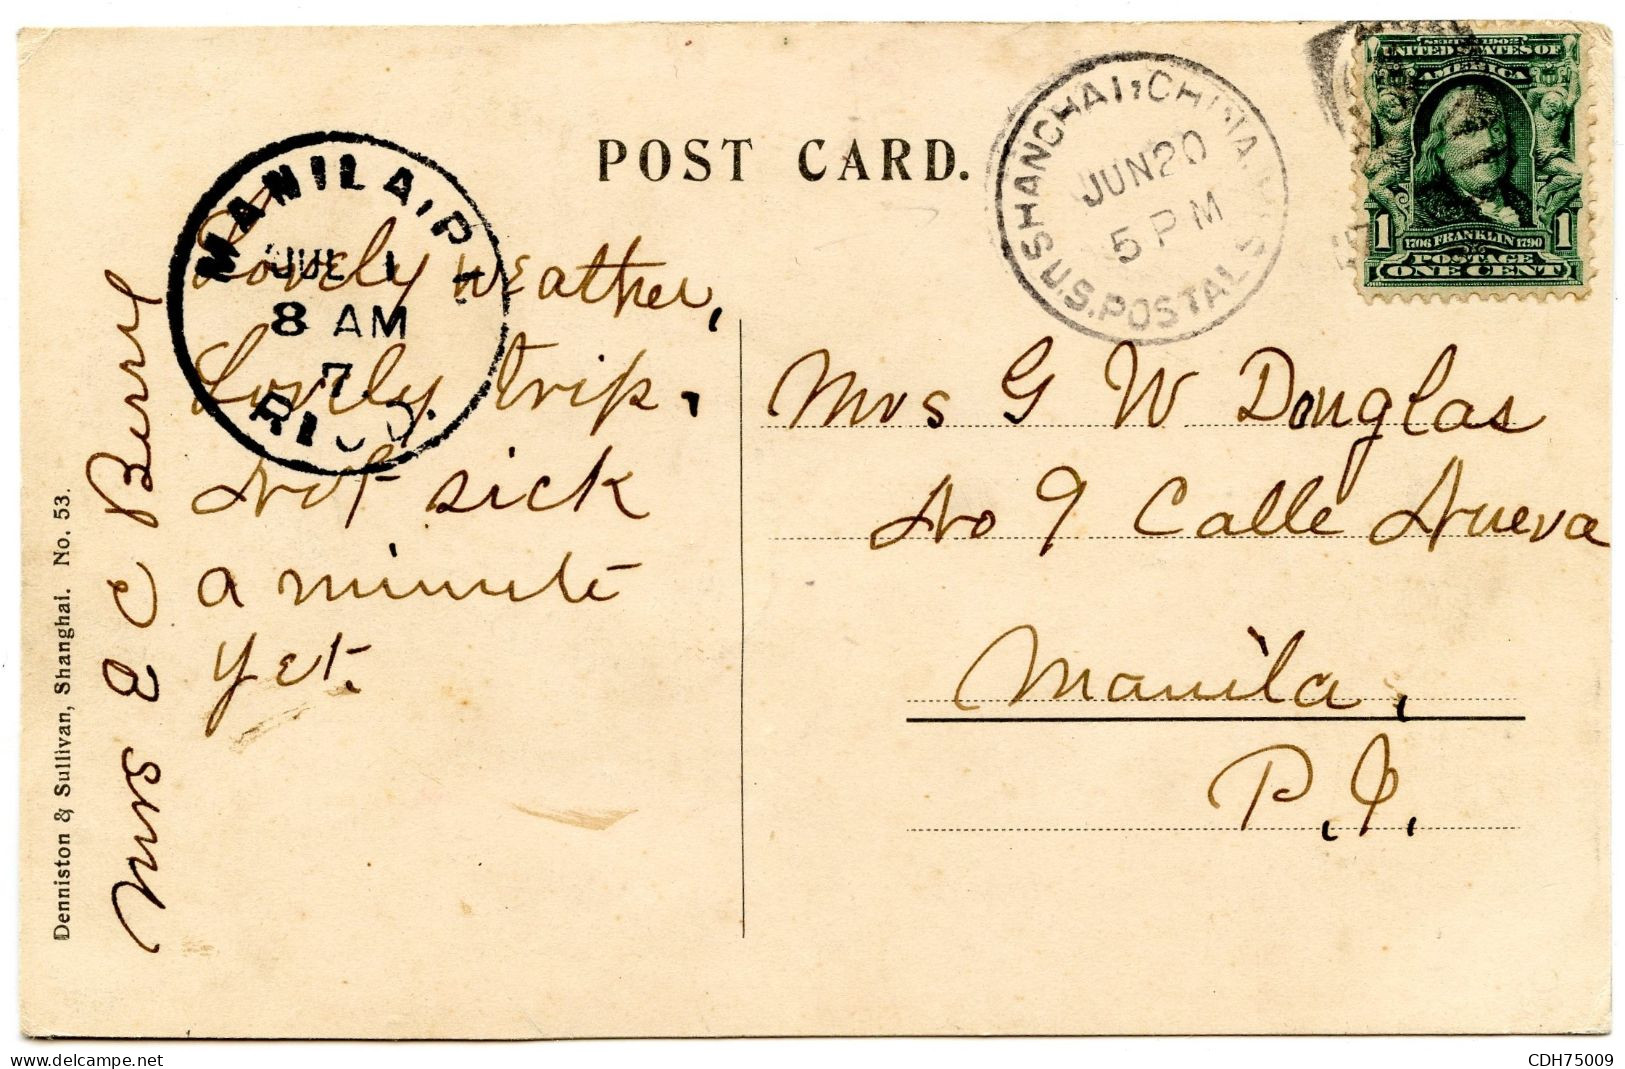 POST CARD.
SHANGHAI, CHINA.
JUN 20
5 PM
U.S. POSTAL
SERIES 1902
UNITED STATES OF
AMERICA
1
1
1706 FRANKLIN 1790
POSTAGE
ONE CENT
MANILA, P. I.
JUL 1
8 AM
7
Lovely weather,
Lovely trip.
Not sick
a minute
yet.
Mrs E C Berry
Mrs G W Douglas
No 9 Calle Nueva
Manila,
P. I.
Denniston & Sullivan, Shanghai. No. 53.
delcampe.net
CDH75009